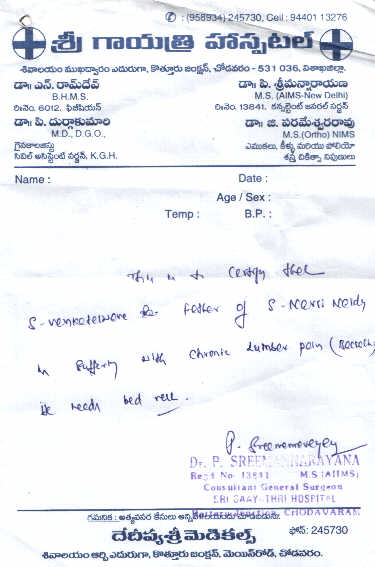 ✆ : (958934) 245730, Cell : 94401 13276
శ్రీ గాయత్రి హాస్పటల్
శివాలయం ముఖద్వారం ఎదురుగా, కొత్తూరు జంక్షన్, చోడవరం - 531 036, విశాఖజిల్లా.
డా॥ ఎన్. రామ్‌దేవ్
B.H.M.S.
రిజినెం. 6012. ఫిజీషియన్
డా॥ పి. దుర్గాకుమారి
M.D., D.G.O.,
గైనకాలజిస్టు
సివిల్ అసిస్టెంట్ సర్జన్, K.G.H.
డా॥ పి. శ్రీమన్నారాయణ
M.S. (AIMS-New Delhi)
రిజినెం. 13841. కన్సల్టెంట్ జనరల్ సర్జన్
డా॥ జి. పరమేశ్వరరావు
M.S.(Ortho) NIMS
ఎముకలు, కీళ్ళు మరియు పోలియో
శస్త్ర చికిత్సా నిపుణులు
Name :
Date :
Age / Sex :
Temp :
B.P. :
This is to certify that
S. Venkateswara Father of S. Narsi Naidy
is suffering with chronic Lumber pain
He needs bed rest.
P. Sreemannarayana
Dr. P. SREEMANNARAYANA
Regd No. 13841 M.S (AIIMS)
Consultant General Surgeon
SRI GAAYATHRI HOSPITAL
Kotturu Junction, CHODAVARAM
గమనిక : అత్యవసర కేసులు అన్నివేళలయందు చూడబడును.
దేదీప్యశ్రీ మెడికల్స్
ఫోన్: 245730
శివాలయం ఆర్చి ఎదురుగా, కొత్తూరు జంక్షన్, మెయిన్‌రోడ్, చోడవరం.